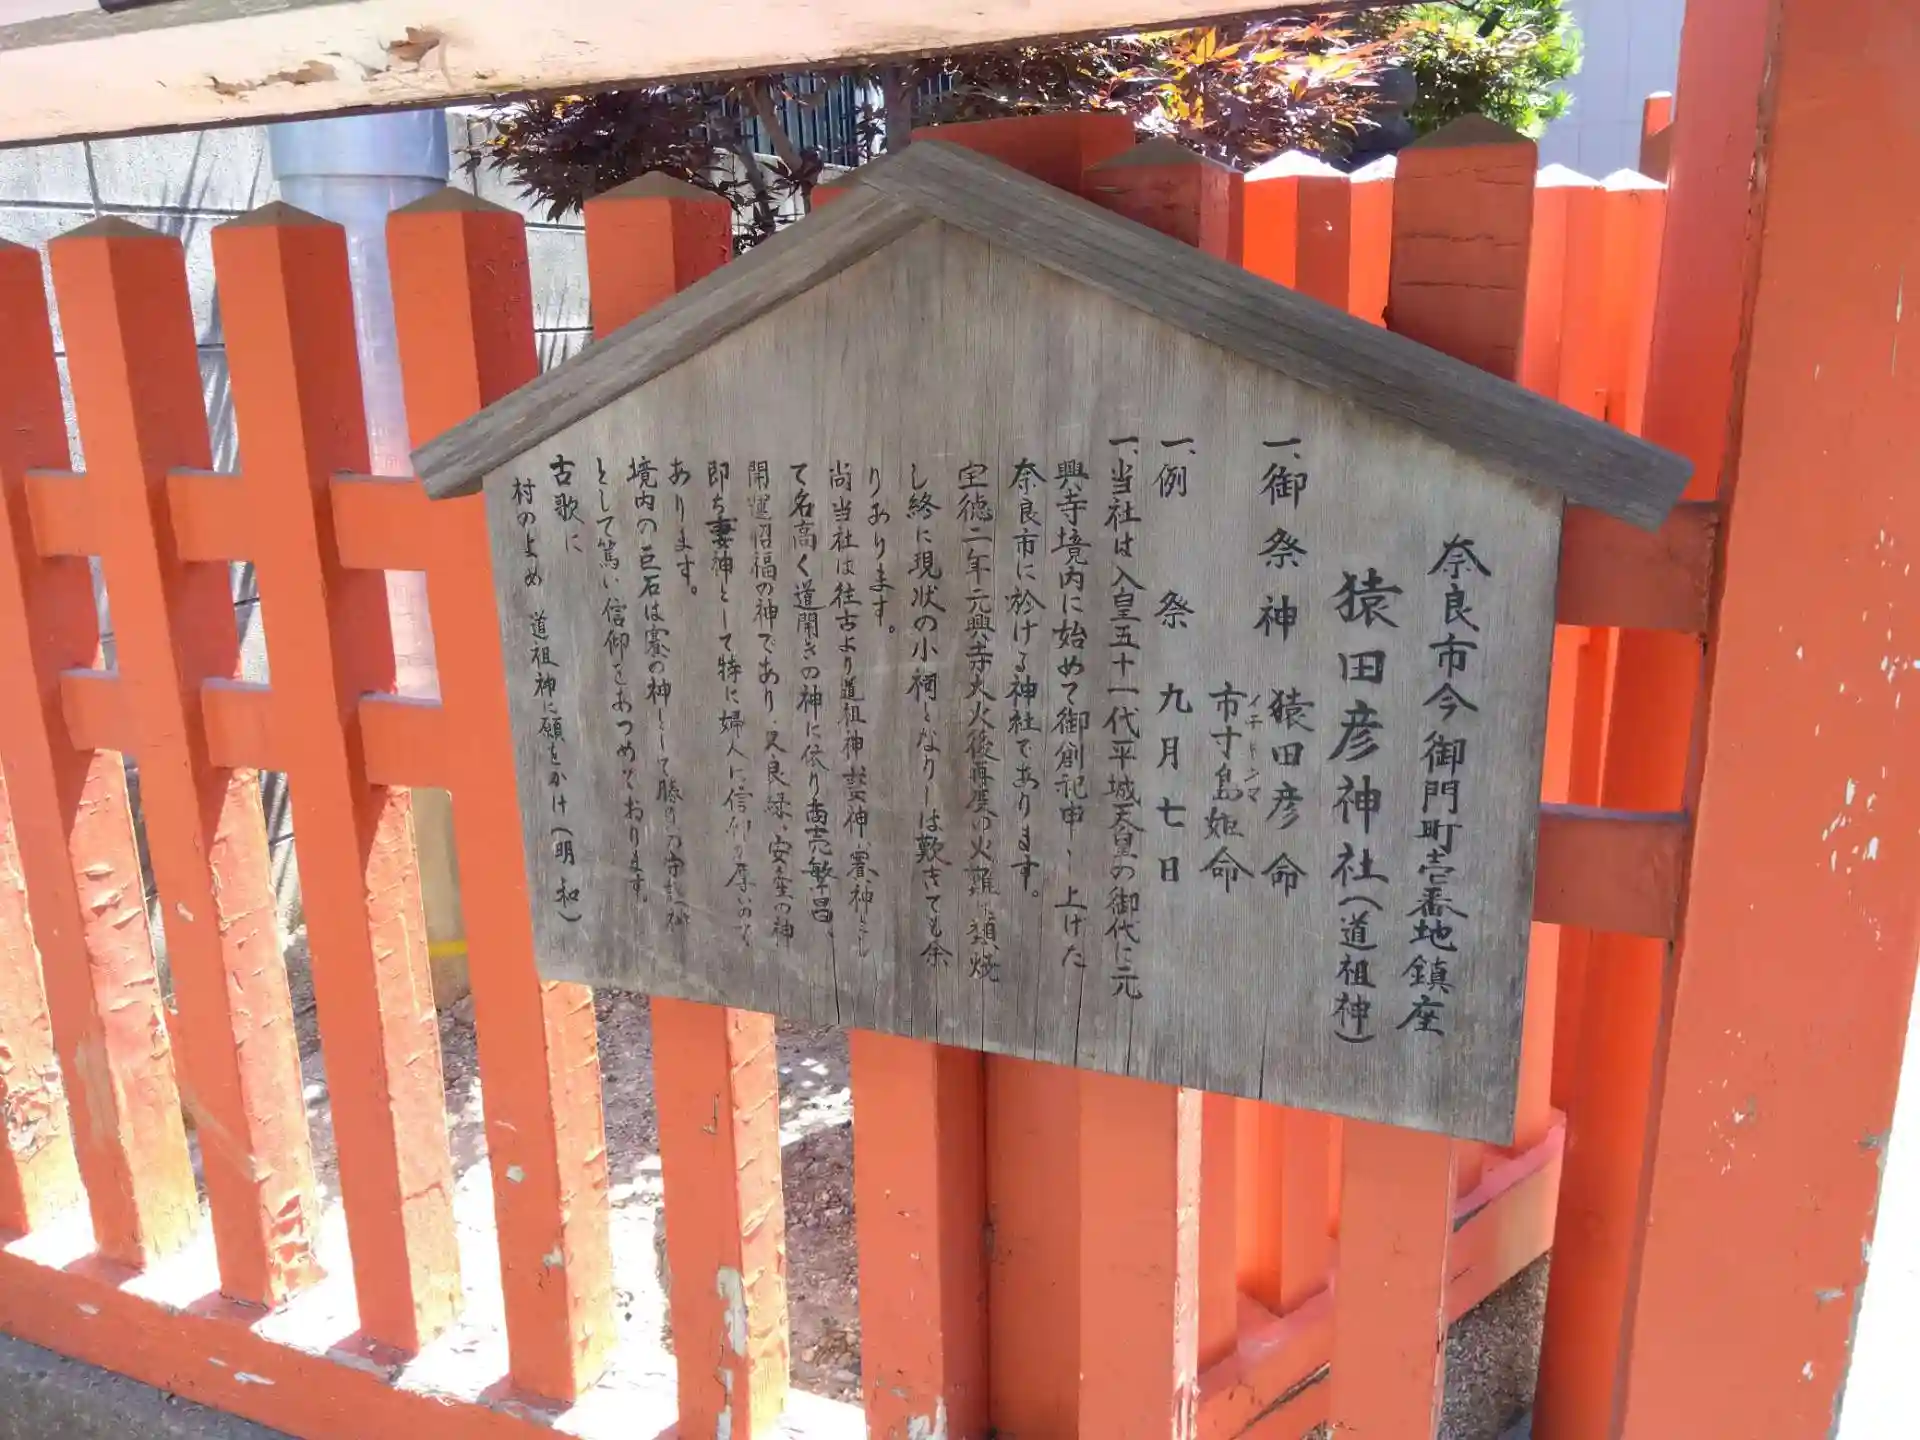 奈良市今御門町壱番地鎮座
猿田彦神社(道祖神)
一、御祭神 猿田彦命
イチキシマ
市寸島姫命
一、例祭 九月七日
一、当社は人皇五十一代平城天皇の御代に元
興寺境内に始めて御創祀申し上げた
奈良市に於ける神社であります。
宝徳二年元興寺大火後再度の火難に類焼
し終に現状の小祠となりしは歎きても余
りあります。
尚当社は往古より道祖神、妻神、賽神とし
て名高く道開きの神に依り商売繁昌、
開運招福の神であり、又良縁、安産の神
即ち妻神として特に婦人に信仰の厚いので
あります。
境内の巨石は賽の神として勝負の守護神
として篤い信仰をあつめております。
古歌に
村のよめ 道祖神に願をかけ(明和)